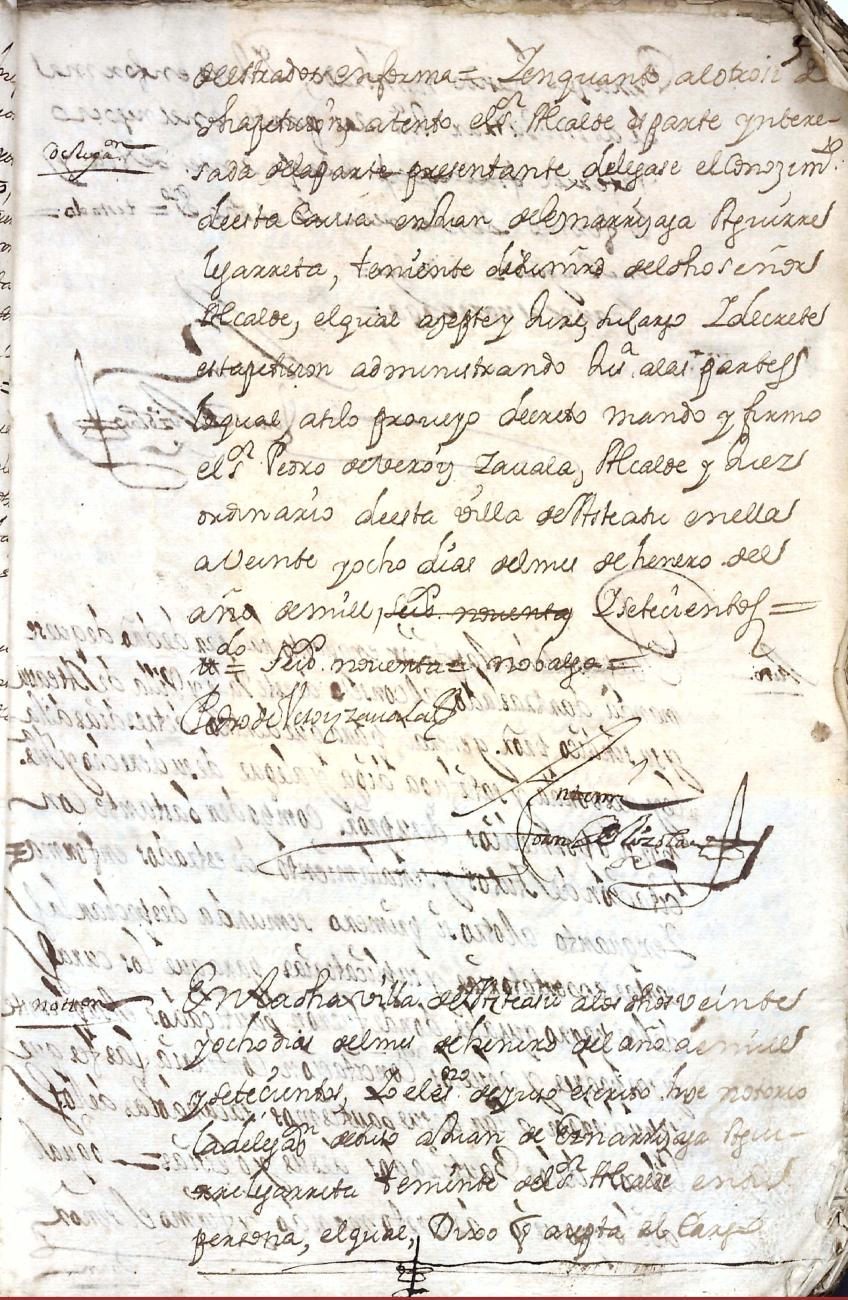 5
de estrados en forma = Y en quanto al otrosi de
dha peticion, atento el Sr. Alcalde es parte yntere-
Delegaon
sada de la parte presentante delegase el Conozimto
de esta Causa en Juan de Eznarriçaga Aguirre
Leyarreta, teniente del dho señor
Alcalde, el qual açepte y Jure, su cargo Y decrete
esta peticion administrando Justa a las partes
lo qual asi lo proueyo decreto mando y firmo
el Sr. Pedro de Veroiz Zauala, Alcalde y Juez
ordinario de esta villa de Asteasu en ella
a Veinte y ocho dias del mes de henero del
año de mill, seis. noventa Y setecientos =
do = Seis. noventa = no balga =
Pedro de Veroiz zauala
Ante mi
Joan
Noton
En la dha villa de Asteasu a los dhos veinte
y ocho dias del mes de henero del año de mill
y setecientos, Yo el esno de yuso escrito hize notorio
la delegaon de suso a Juan de Eznarriçaga Aguir-
re Leyarreta teniente del Sr. Alcalde en su
persona, el qual, Dixo q açepta el Cargo